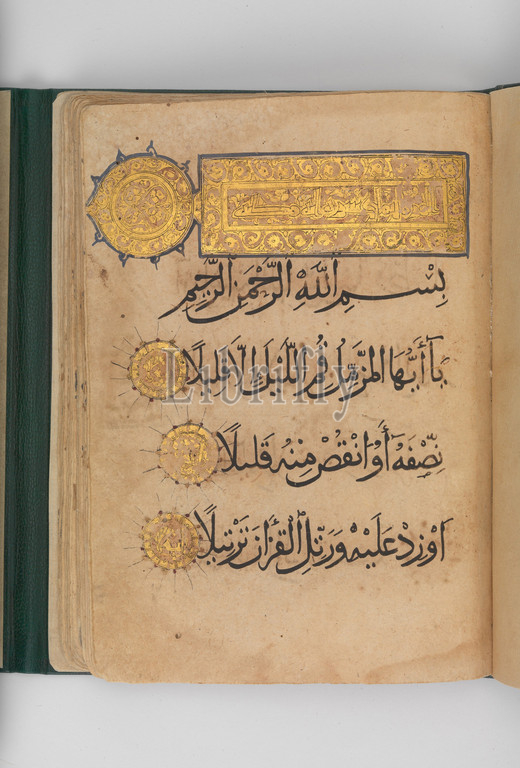 بِسْمِ ٱللَّهِ ٱلرَّحْمَنِ ٱلرَّحِيمِ
يَا أَيُّهَا الْمُزَّمِّلُ قُمِ اللَّيْلَ إِلَّا قَلِيلًا
نِصْفَهُ أَوُ انْقُصْ مِنْهُ قَلِيلًا
اَوْ زِدْ عَلَيْهِ وَرَتِّلِ الْقُرْآنَ تَرْتِيلًا